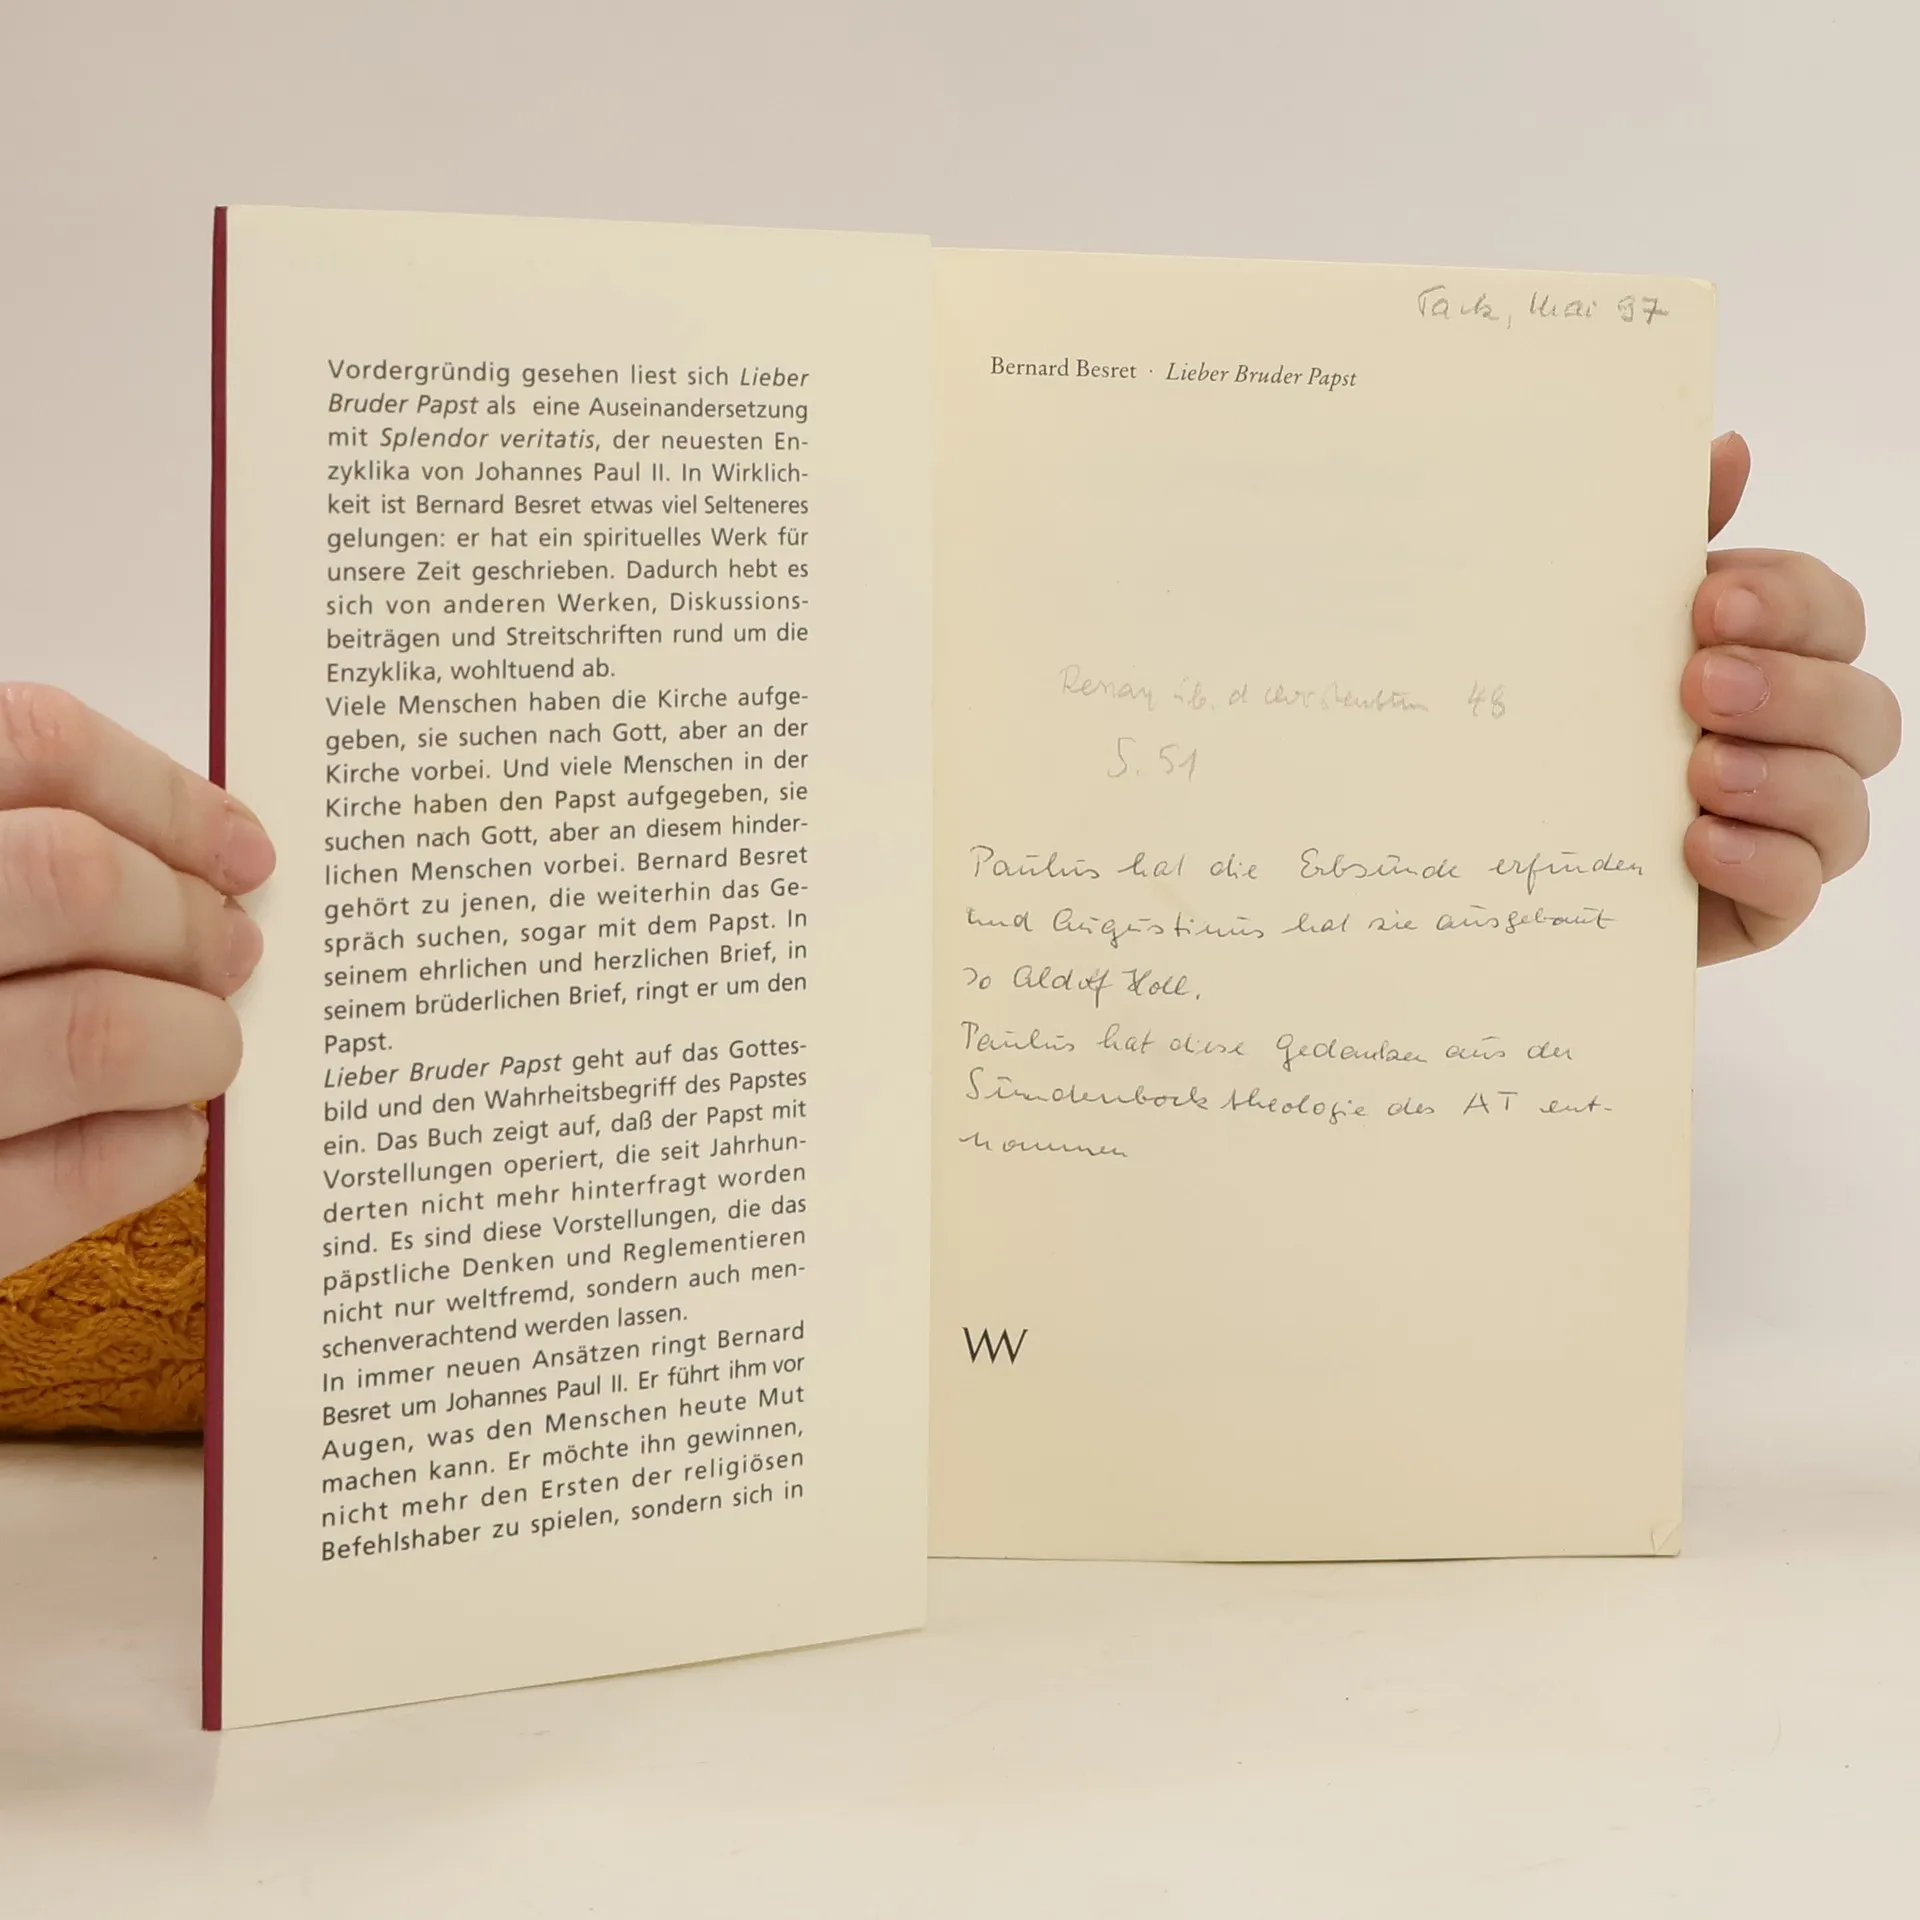 Vordergründig gesehen liest sich Lieber
Bruder Papst als eine Auseinandersetzung
mit Splendor veritatis, der neuesten En-
zyklika von Johannes Paul II. In Wirklich-
keit ist Bernard Besret etwas viel Selteneres
gelungen: er hat ein spirituelles Werk für
unsere Zeit geschrieben. Dadurch hebt es
sich von anderen Werken, Diskussions-
beiträgen und Streitschriften rund um die
Enzyklika, wohltuend ab.
Viele Menschen haben die Kirche aufge-
geben, sie suchen nach Gott, aber an der
Kirche vorbei. Und viele Menschen in der
Kirche haben den Papst aufgegeben, sie
suchen nach Gott, aber an diesem hinder-
lichen Menschen vorbei. Bernard Besret
gehört zu jenen, die weiterhin das Ge-
spräch suchen, sogar mit dem Papst. In
seinem ehrlichen und herzlichen Brief, in
seinem brüderlichen Brief, ringt er um den
Papst.
Lieber Bruder Papst geht auf das Gottes-
bild und den Wahrheitsbegriff des Papstes
ein. Das Buch zeigt auf, daß der Papst mit
Vorstellungen operiert, die seit Jahrhun-
derten nicht mehr hinterfragt worden
sind. Es sind diese Vorstellungen, die das
päpstliche Denken und Reglementieren
nicht nur weltfremd, sondern auch men-
schenverachtend werden lassen.
In immer neuen Ansätzen ringt Bernard
Besret um Johannes Paul II. Er führt ihm vor
Augen, was den Menschen heute Mut
machen kann. Er möchte ihn gewinnen,
nicht mehr den Ersten der religiösen
Befehlshaber zu spielen, sondern sich in
Mai 97
Bernard Besret · Lieber Bruder Papst
üb. d 48
S. 51
Paulus hat die Erbsünde erfunden
und Augustinus hat sie ausgebaut
so Adolf Holl.
Paulus hat diese Gedanken aus der
Sündenbocktheologie des AT ent-
nommen
W